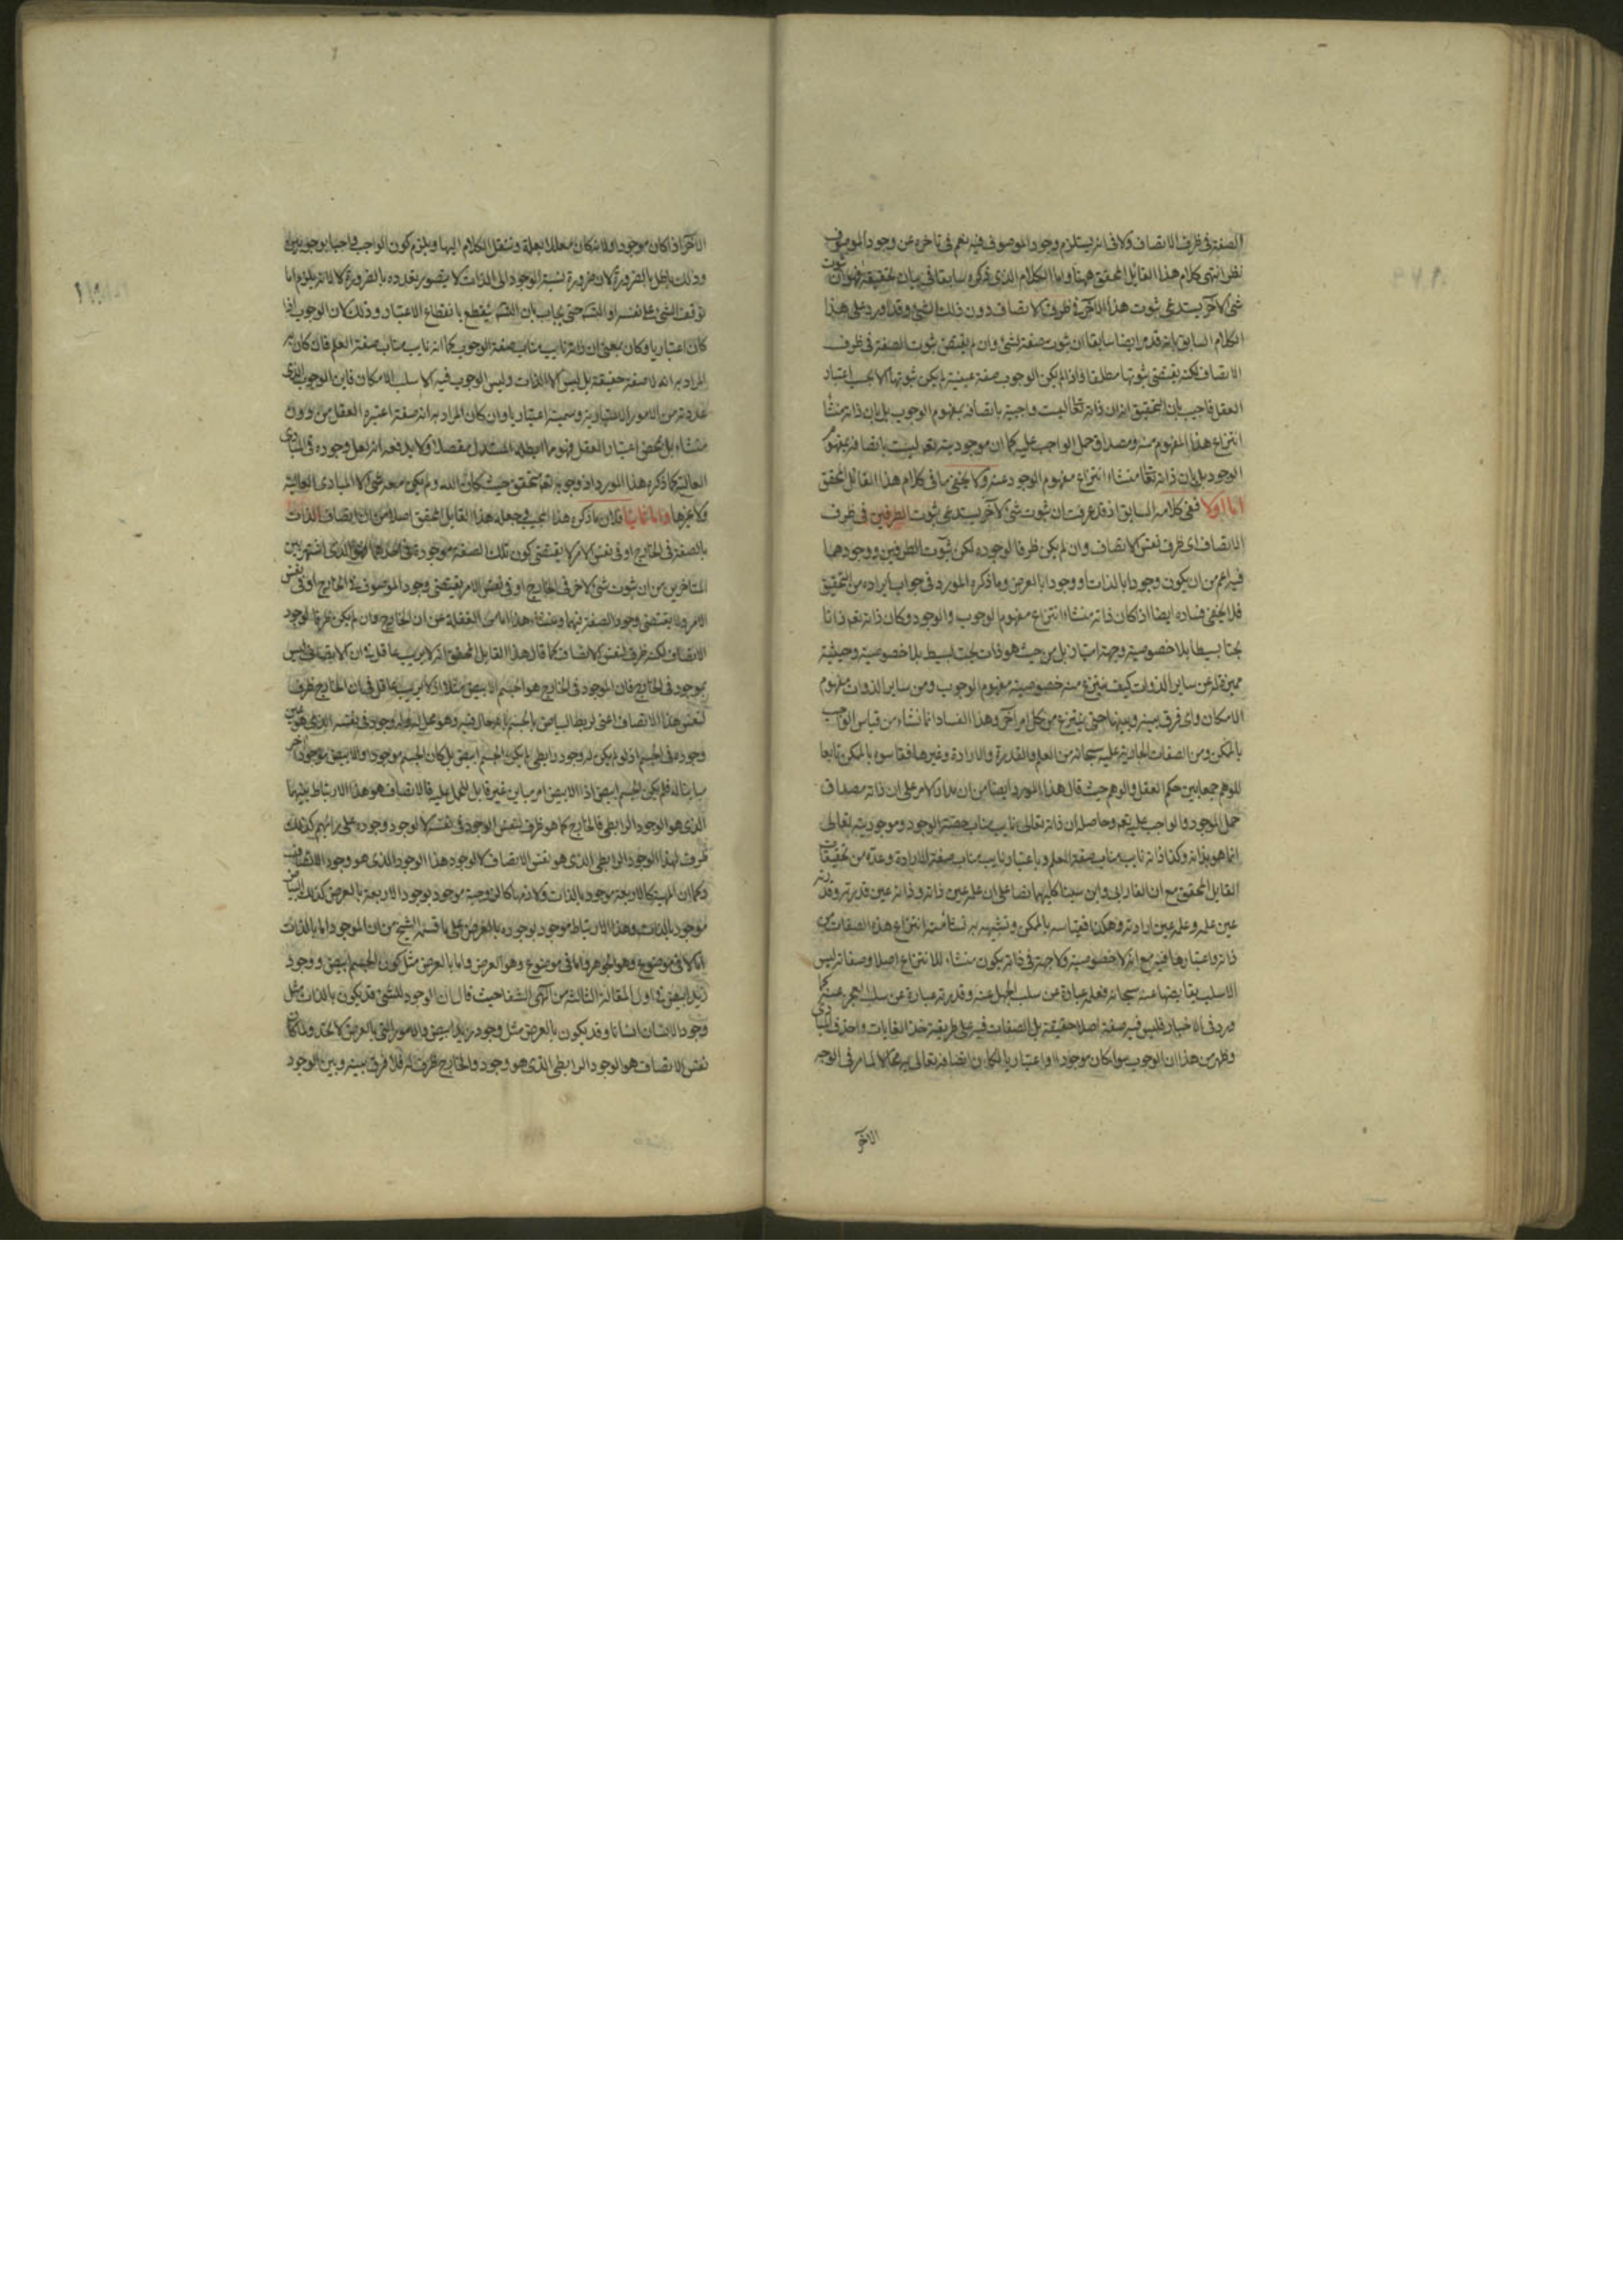 الصفة فى ظرف الاتصاف ولا فى انه يستلزم وجود الموصوف فيه نعم فى تاخره عن وجود الموصوف
نظر انتهى كلام هذا القائل المحقق ههنا واما الكلام الذى ذكره سابقا فى بيان تحقيقه فهو ان ثبوت
شئ لآخر يستدعى ثبوت هذا الآخر فى ظرف الاتصاف دون ذلك الشئ وقد اورد على هذا
الكلام السابق بانه قد مر ايضا سابقا ان ثبوت صفة لشئ وان لم يقتض ثبوت الصفة فى ظرف
الاتصاف لكنه يقتضى ثبوتها مطلقا فاذا لم يكن الوجوب صفة عينية لم يكن ثبوتها الا بحسب اعتبار
العقل فاجيب بان التحقيق ان ذاته تعالى ليست واجبة باتصافه بمفهوم الوجوب بل بان ذاته منشأ
انتزاع هذا المفهوم منه ومصداق حمل الواجب عليه كما ان موجوديته تعالى ليست باتصافه بمفهوم
الوجود بل بان ذاته تعالى منشاء انتزاع مفهوم الوجود عنه ولا يخفى ما فى كلام هذا القائل المحقق
اما اولا ففى كلامه السابق اذ قد عرفت ان ثبوت شئ لآخر يستدعى ثبوت الطرفين فى ظرف
الاتصاف اى ظرف نفس الاتصاف وان لم يكن ظرفا لوجوده لكن ثبوت الطرفين ووجودهما
فيه اعم من ان يكون وجودا بالذات او وجودا بالعرض وما ذكره المورد فى جواب ايراده من التحقيق
فلا يخفى فساده ايضا اذا كان ذاته منشاء انتزاع مفهوم الوجوب والوجود وكان ذاته تعالى ذاتا
بحتا بسيطا بلا خصوصية وجهة امتياز بل من حيث هو ذات بحت بسيط بلا خصوصية وحيثية
مميزة له عن ساير الذوات كيف ينتزع منه خصوصية مفهوم الوجوب ومن ساير الذوات مفهوم
الامكان واى فرق بينه وبينها حتى ينتزع من كل امر آخر وهذا الفساد انما نشاء من قياس الواجب
بالممكن ومن الصفات الجارية عليه سبحانه من العلم والقدرة والارادة وغيرها فقاسوه بالممكن تابعا
للوهم جمعا بين حكم العقل والوهم حيث قال هذا المورد ايضا من ان مدار الامر على ان ذاته مصداق
حمل الموجود والواجب عليه تعالى وحاصله ان ذاته تعالى نايب مناب حصة الوجود وموجوديته تعالى
انما هو بذاته وكذا ذاته نايب مناب صفة العلم وباعتبار نايب مناب صفة الارادة وعده من تحقيقات
القايل المحقق مع ان الفارابى وابن سينا كليهما نصا على ان علمه عين ذاته وذاته عين قدرته وقدرته
عين علمه وعلمه عين ارادته وهكذا فقياسه بالممكن وتشبيهه به انتزاع هذه الصفات من
ذاته واعتبارها فيه مع انه لا خصوصية ولا جهة فى ذاته يكون منشاء للانتزاع اصلا وصفاته ليس
الا سلب نقايضها عنه سبحانه فعلمه عبارة عن سلب الجهل عنه وقدرته عبارة عن سلب العجز عنه كما
ورد فى الاخبار فليس فيه صفة اصلا حقيقة بل الصفات فيه على طريقة خذ الغايات واحذف المبادى
وظهر من هذا ان الوجوب سواء كان موجودا او اعتباريا لكان اتصافه تعالى به محالا لما مر فى الوجه
الآخر
الآخر اذا كان موجودا ولا شكان معللا بعلة وننقل الكلام اليها ويلزم كون الواجب واجبا بوجوبين
وذلك باطل بالضرورة لان ضرورة نسبة الوجود الى الذات لا يتصور تعدده بالضرورة لا لانه يلزم اما
توقف الشئ على نفسه او التسلسل حتى يجاب بان التسلسل ينقطع بانقطاع الاعتبار وذلك لان الوجوب اذا
كان اعتباريا وكان بمعنى ان ذاته نايب مناب صفة الوجوب كما انه نايب مناب صفة العلم فان كان
المراد به انه لا صفة حقيقة بل ليس الا الذات وليس الوجوب فيه الا سلب الامكان فاين الوجوب الذى
عددته من الامور الاعتبارية وسميته اعتباريا وان كان المراد به انه صفة اعتبره العقل من دون
منشاء بل بمحض اعتبار العقل فهو ما ابطله المستدل مفصلا ولا يدفعه انه لعل وجوده فى المبادى
العالية كما ذكره هذا المورد اذ وجوبه تعالى متحقق حيث كان الله ولم يكن معه شئ لا المبادى العالية
ولا غيرها واما ثانيا فلان ما ذكره هذا المجيب وجعله هذا القايل المحقق اصلا من ان اتصاف الذات
بالصفة فى الخارج او فى نفس الامر لا يقتضى كون تلك الصفة موجودة فى احدهما الذى اشتهر بين
المتاخرين من ان ثبوت شئ لاخر فى الخارج او فى نفس الامر يقتضى وجود الموصوف فى الخارج او فى نفس
الامر ولا يقتضى وجود الصفة فيهما ومنشاء هذا انما هو الغفلة عن ان الخارج وان لم يكن ظرفا لوجود
الاتصاف لكنه ظرف لنفس الاتصاف كما قال هذا القايل المحقق انه لا يريب عاقل فى ان الاتصاف ليس
بموجود فى الخارج فان الموجود فى الخارج هو الجسم الابيض مثلا اذ لا يريب عاقل فى ان الخارج ظرف
لنفس هذا الاتصاف اعنى لربط البياض بالجسم بانه حال فيه وهو محل له وله وجود فى نفسه الذى هو عين
وجوده فى الجسم اذ لو لم يكن له وجود رابطى لم يكن الجسم ابيض بل كان الجسم موجودا والابيض موجودا آخر
مباينا له فلم يكن الجسم ابيض اذ الابيض امر مباين غير قابل للحمل عليه فالاتصاف هو هذا الارتباط بينهما
الذى هو الوجود الرابطى فالخارج كما هو ظرف لنفس الوجود فى نفسه لا لوجود وجوده على رايهم كذلك
ظرف لهذا الوجود الرابطى الذى هو نفس الاتصاف لا لوجود هذا الوجود الذى هو وجود الاتصاف
وكما ان المهية كالاربعة موجودة بالذات ولازمها كالزوجية موجود بوجود الاربعة بالعرض كذلك البياض
موجود بالذات وهذا الارتباط موجود بوجوده بالعرض على ما قسمه الشيخ من ان الموجود اما بالذات
اما لا فى موضوع وهو الجوهر واما فى موضوع وهو العرض واما بالعرض مثل كون الجسم ابيض ووجود
زيد ابيض فى اول المقالة الثالثة من الهى الشفا حيث قال ان الوجود للشئ قد يكون بالذات مثل
وجود الانسان انسانا وقد يكون بالعرض مثل وجود زيد ابيض والامور التى بالعرض لا تحد ولما كان
نفس الاتصاف هو الوجود الرابطى الذى هو وجود والخارج ظرف له فلا فرق بينه وبين الوجود